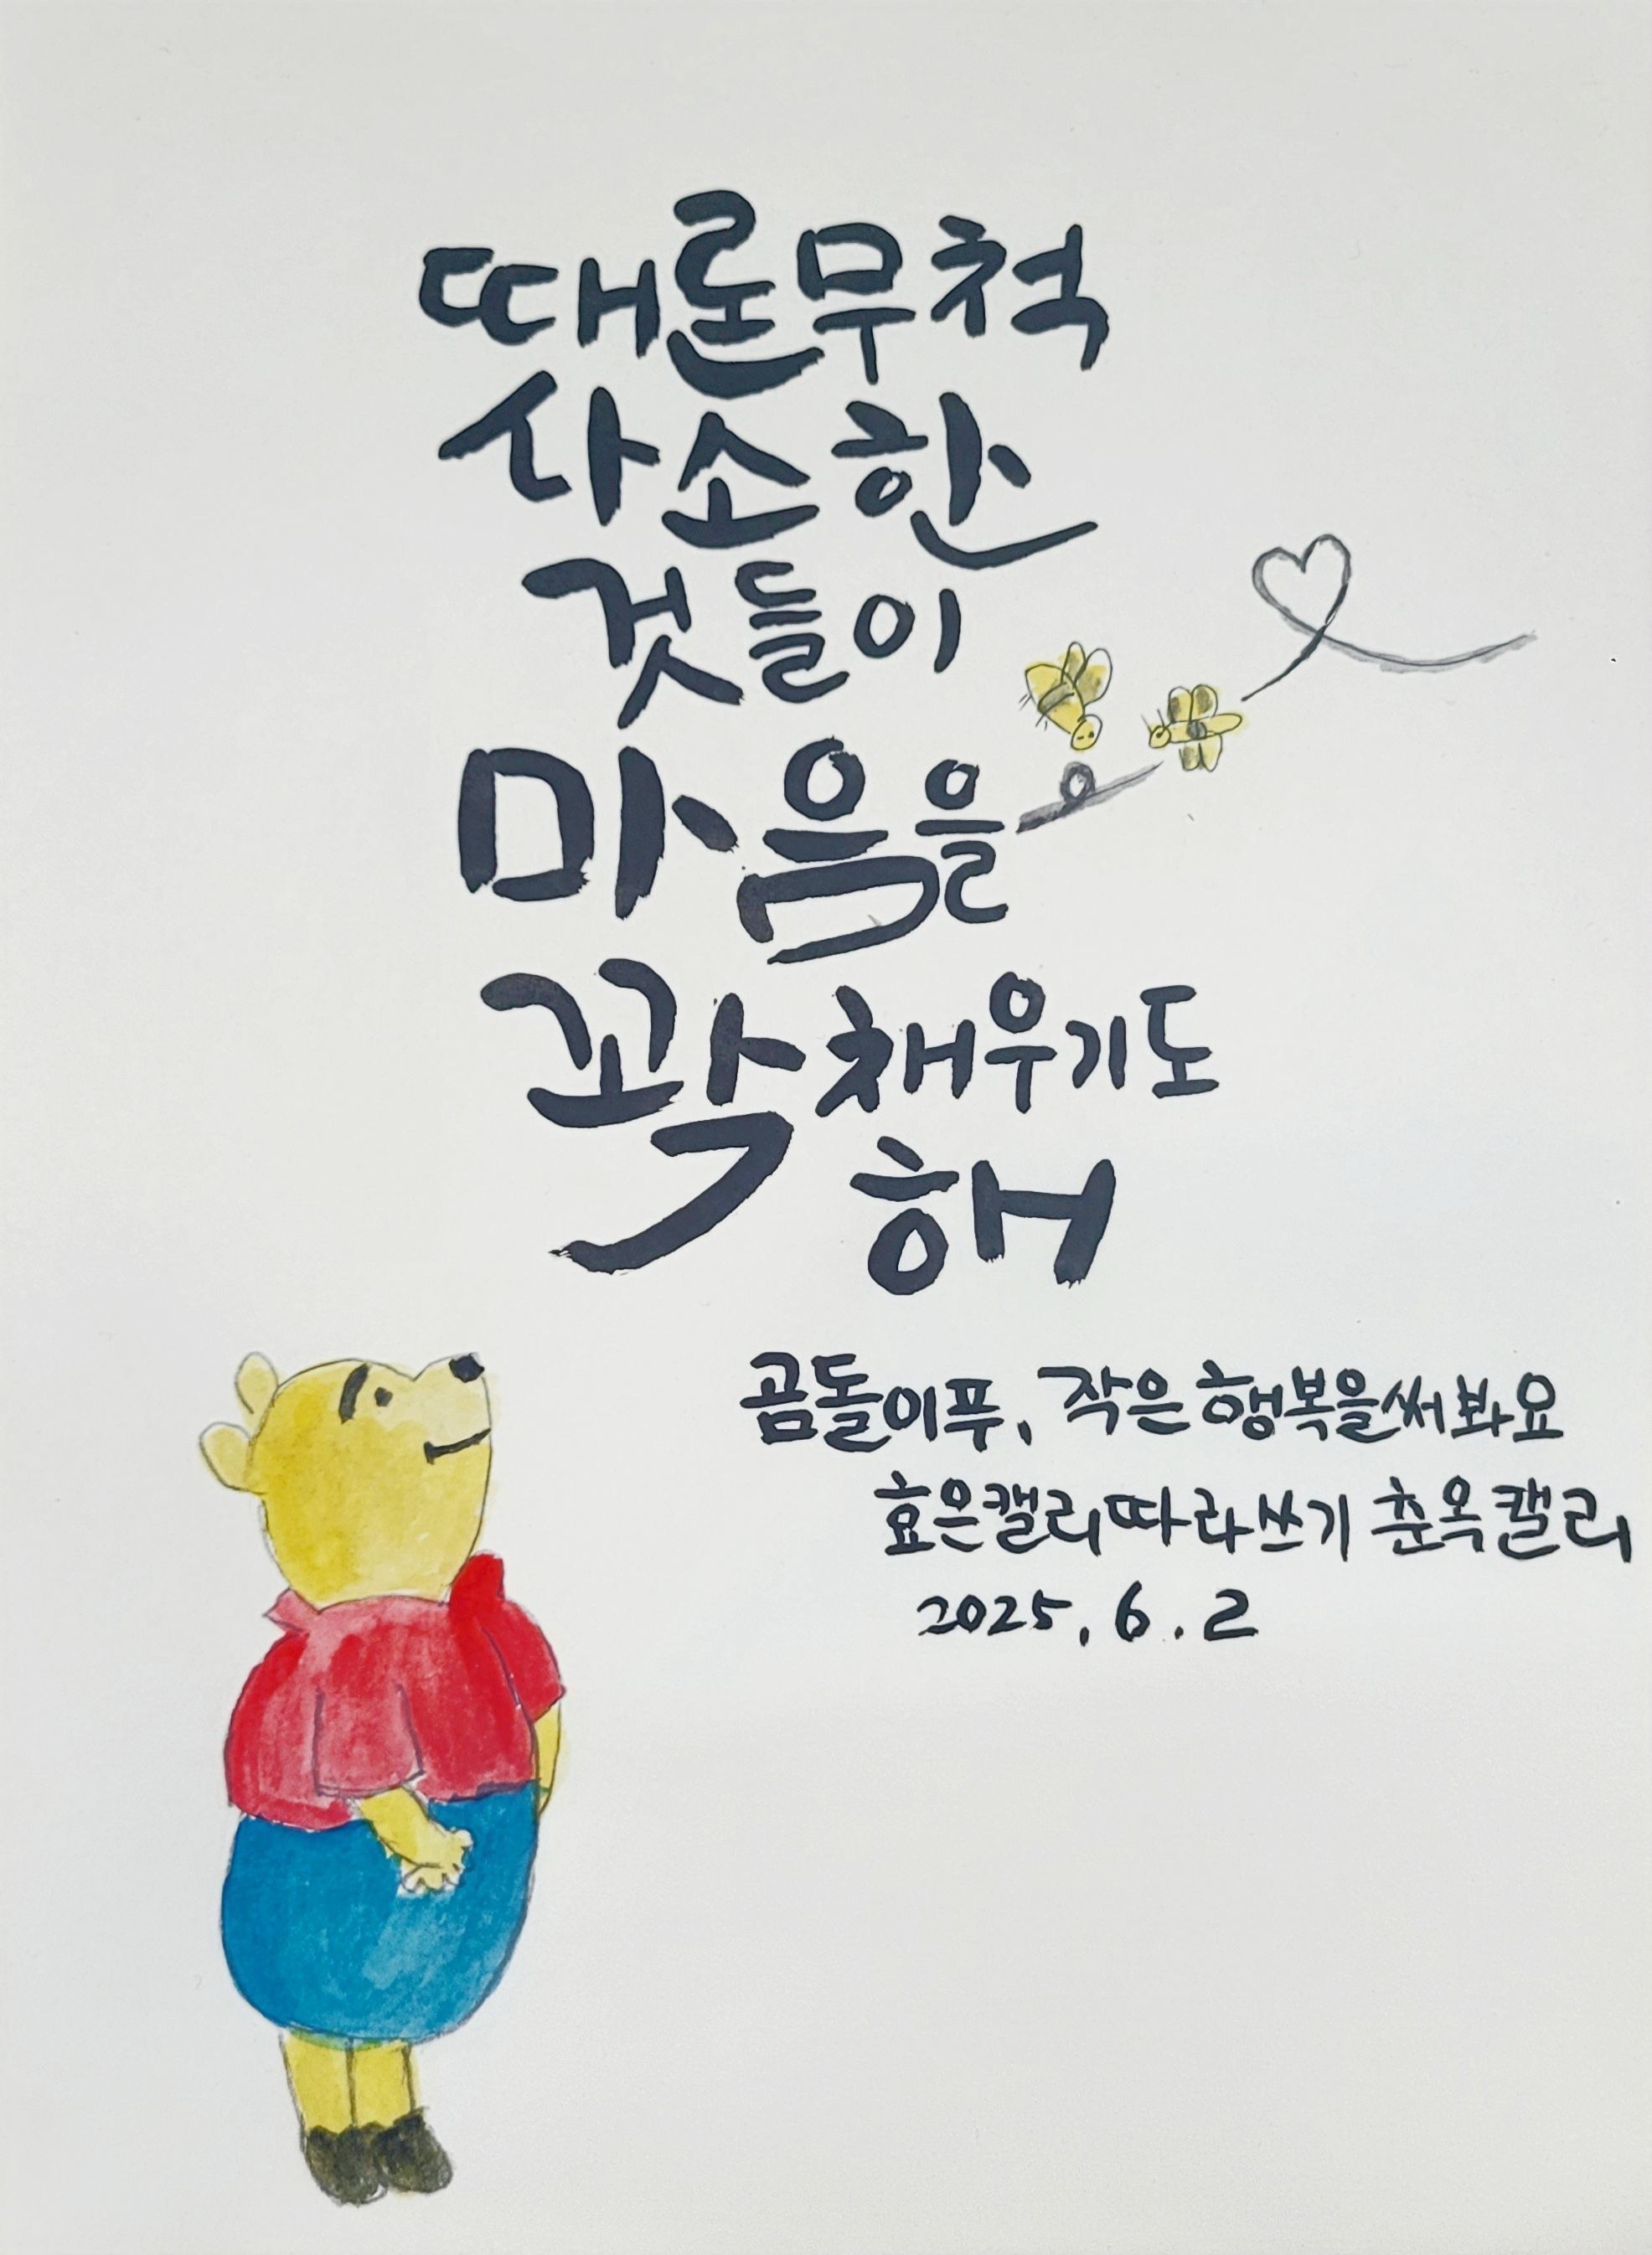 때론 무척
사소한
것들이
마음을
꽉 채우기도
해
곰돌이 푸, 작은 행복을 써봐요
효은캘리 따라쓰기 춘옥캘리
2025. 6. 2